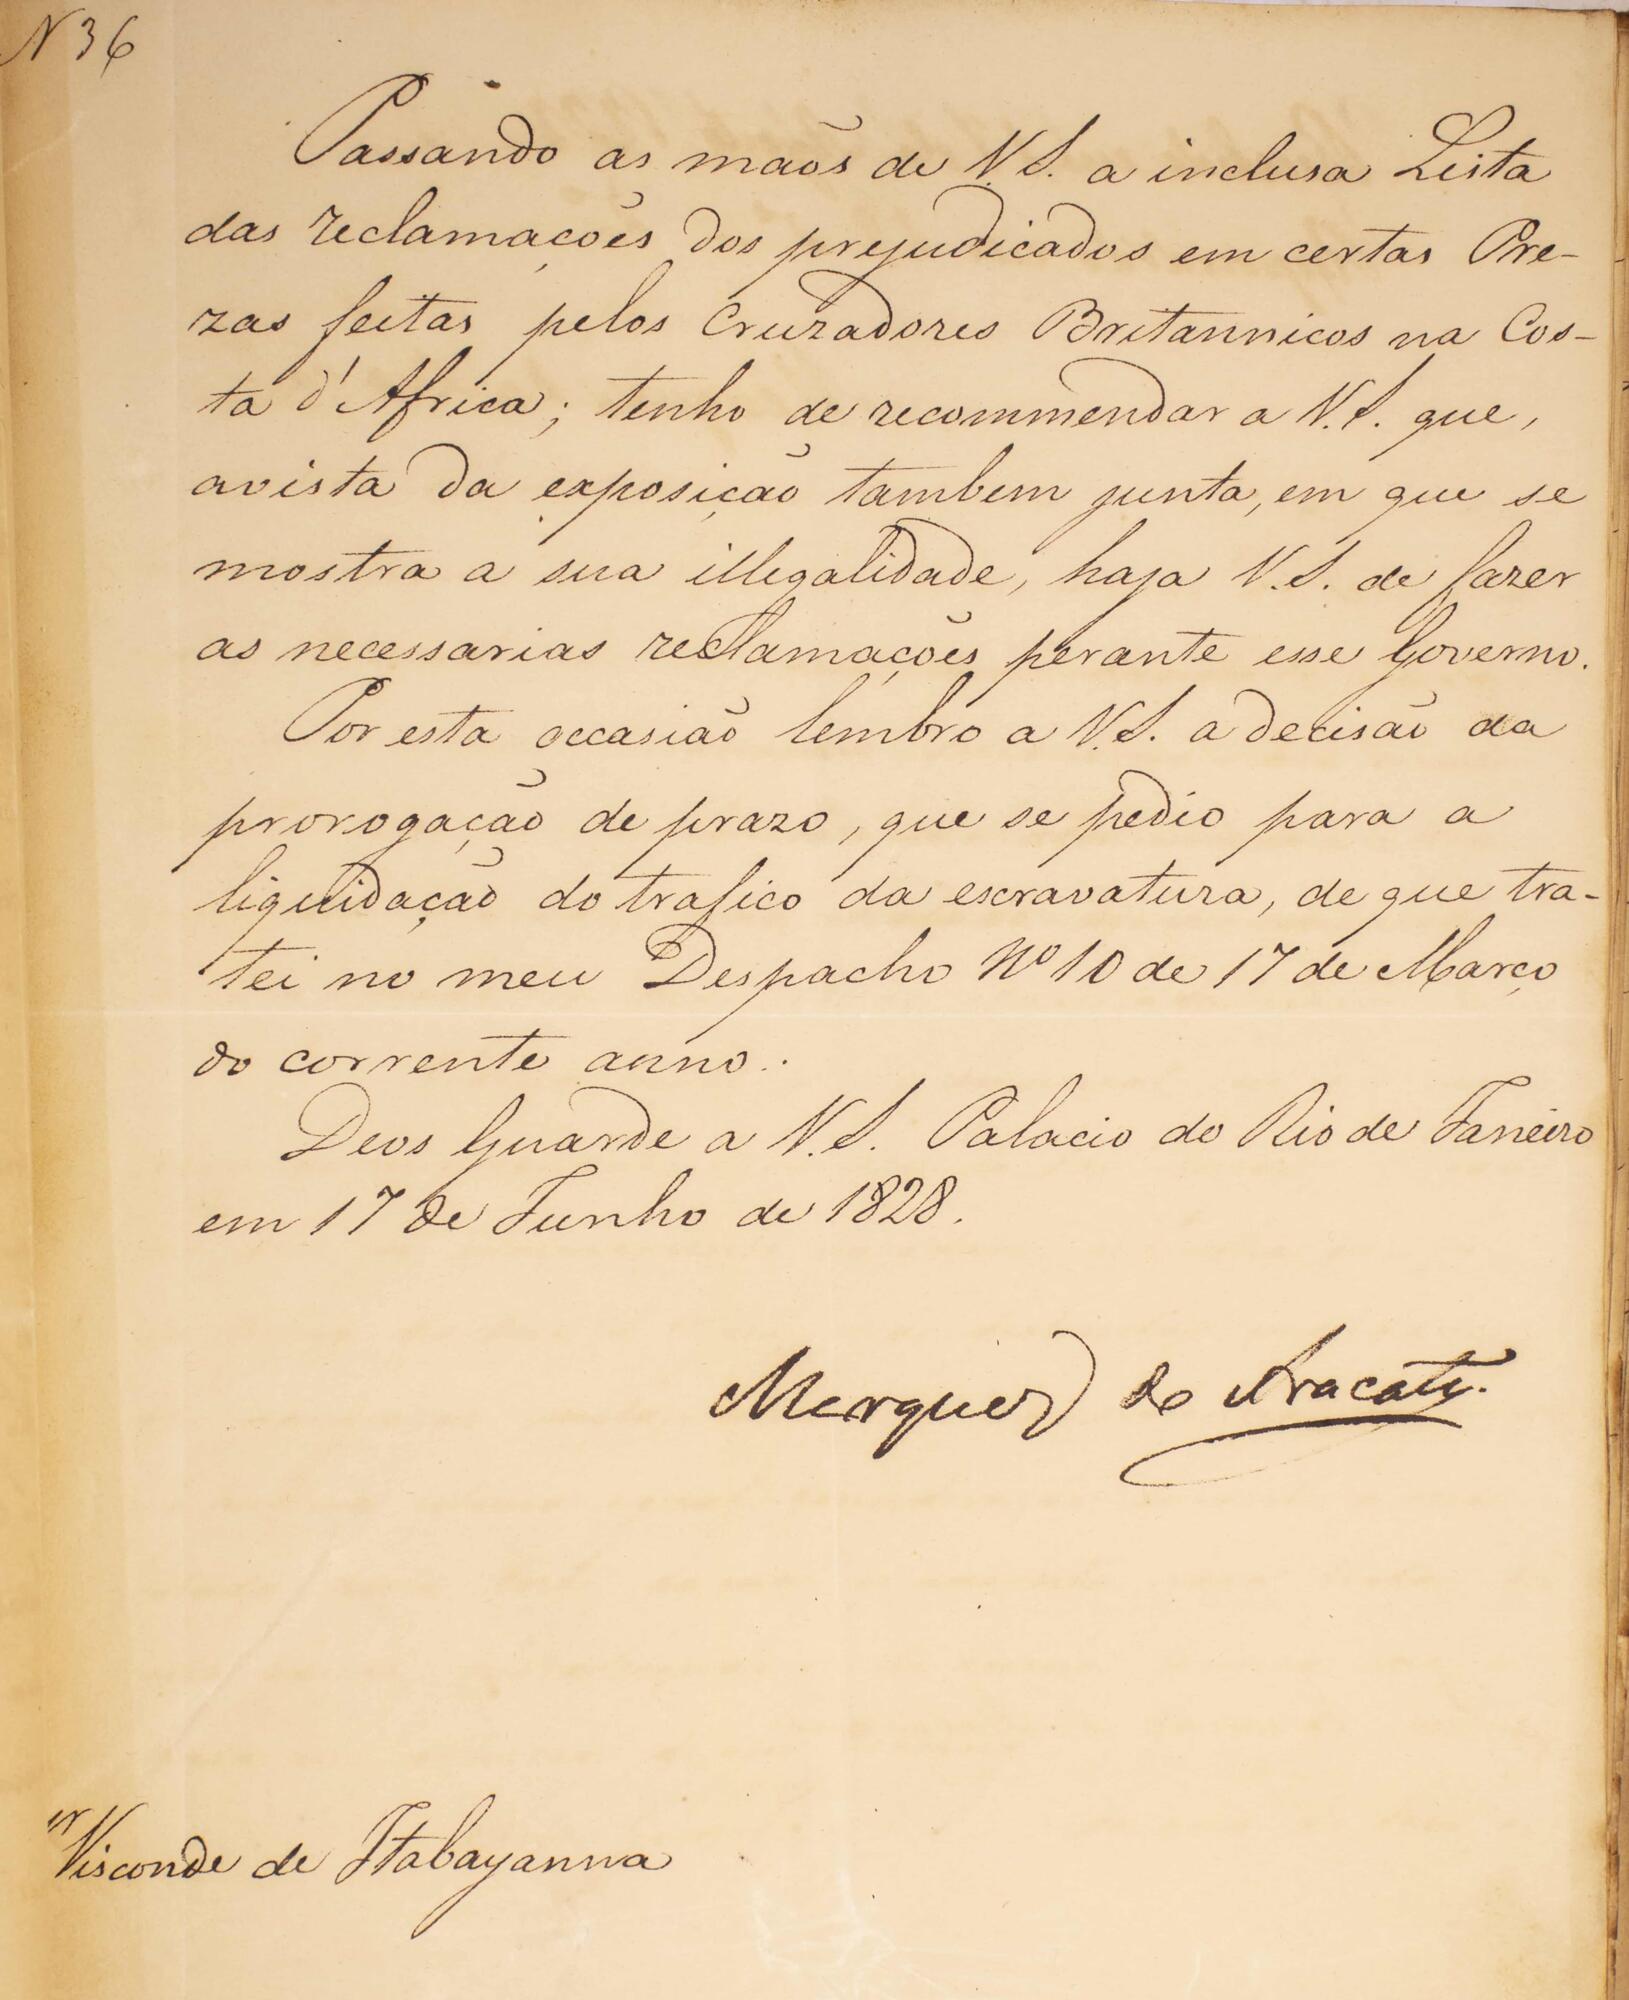 N 36
Passando as mãos de V. S. a inclusa Lista
das reclamações dos prejudicados em certas Pre-
zas feitas pelos Cruzadores Britannicos na Cos-
ta d'Africa; tenho de recommendar a V. S. que,
avista da exposição tambem junta, em que se
mostra a sua illegalidade, haja V. S. de fazer
as necessarias reclamações perante esse Governo.
Por esta occasião lembro a V. S. a decisão da
prorogação de prazo, que se pedio para a
liquidação do trafico da escravatura, de que tra-
tei no meu Despacho Nº 10 de 17 de Março
do corrente anno.
Deos Guarde a V. S. Palacio do Rio de Janeiro
em 17 de Junho de 1828.
Marquez de Aracaty.
Visconde de Itabayanna